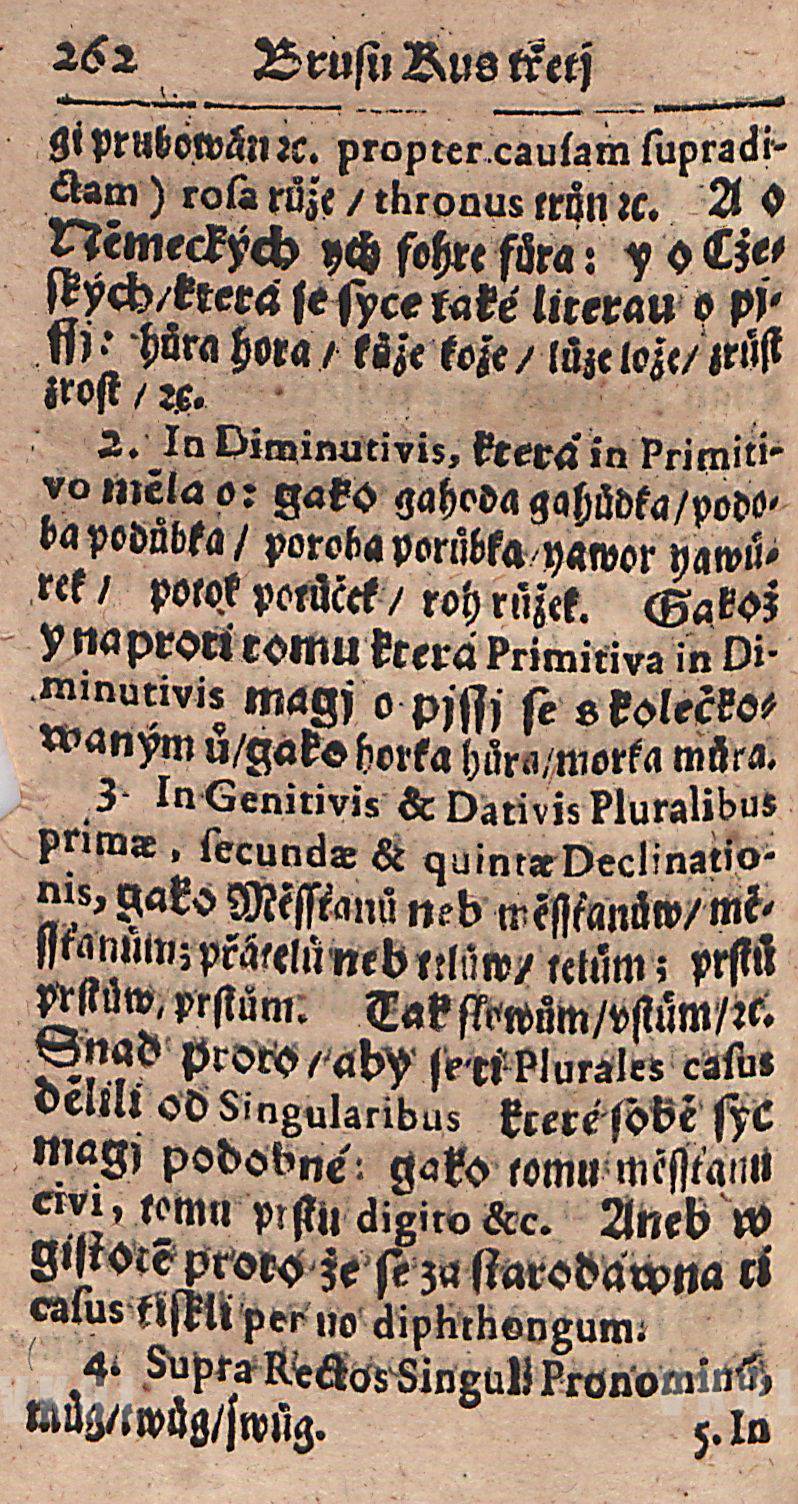 262 Brusu Kus třetj
gi prubowán ꝛc. propter causam supradi-
ctam ) rosa růže / thronus trůn ꝛc. A o
Německých ych fohre fůra: y o Cže-
ských/která se syce také literau o pj-
ssj: hůra hora / kůže kože / lůže lože/ zrůst
zrost / ꝛc.
2. In Diminutivis, která in Primiti-
vo měla o: gako gahoda gahůdka/podo-
ba podůbka / poroba porůbka/yawor yawů-
rek / potok potůček / roh růžek. Gakož
y naproti tomu která Primitiva in Di-
minutivis magj o pjssj se s kolečko-
waným ů/gako horka hůra/morka můra.
3. In Genitivis & Dativis Pluralibus
primæ, secundæ & quintæ Declinatio-
nis, gako Měssťanů neb měssťanůw/ mě-
ssťanům; přátelů neb telůw/ telům; prstů
prstůw, prstům. Tak slowům/vstům/ꝛc.
Snad proto / aby se ti Plurales casus
dělili od Singularibus které sobě syc
magj podobné: gako tomu měssťanu
civi, tomu prstu digito &c. Aneb w
gistotě proto že se za starodáwna ti
casus tiskli per uo diphthongum.
4. Supra Rectos Singul: Pronominū,
můg/twůg/swůg.
5. In